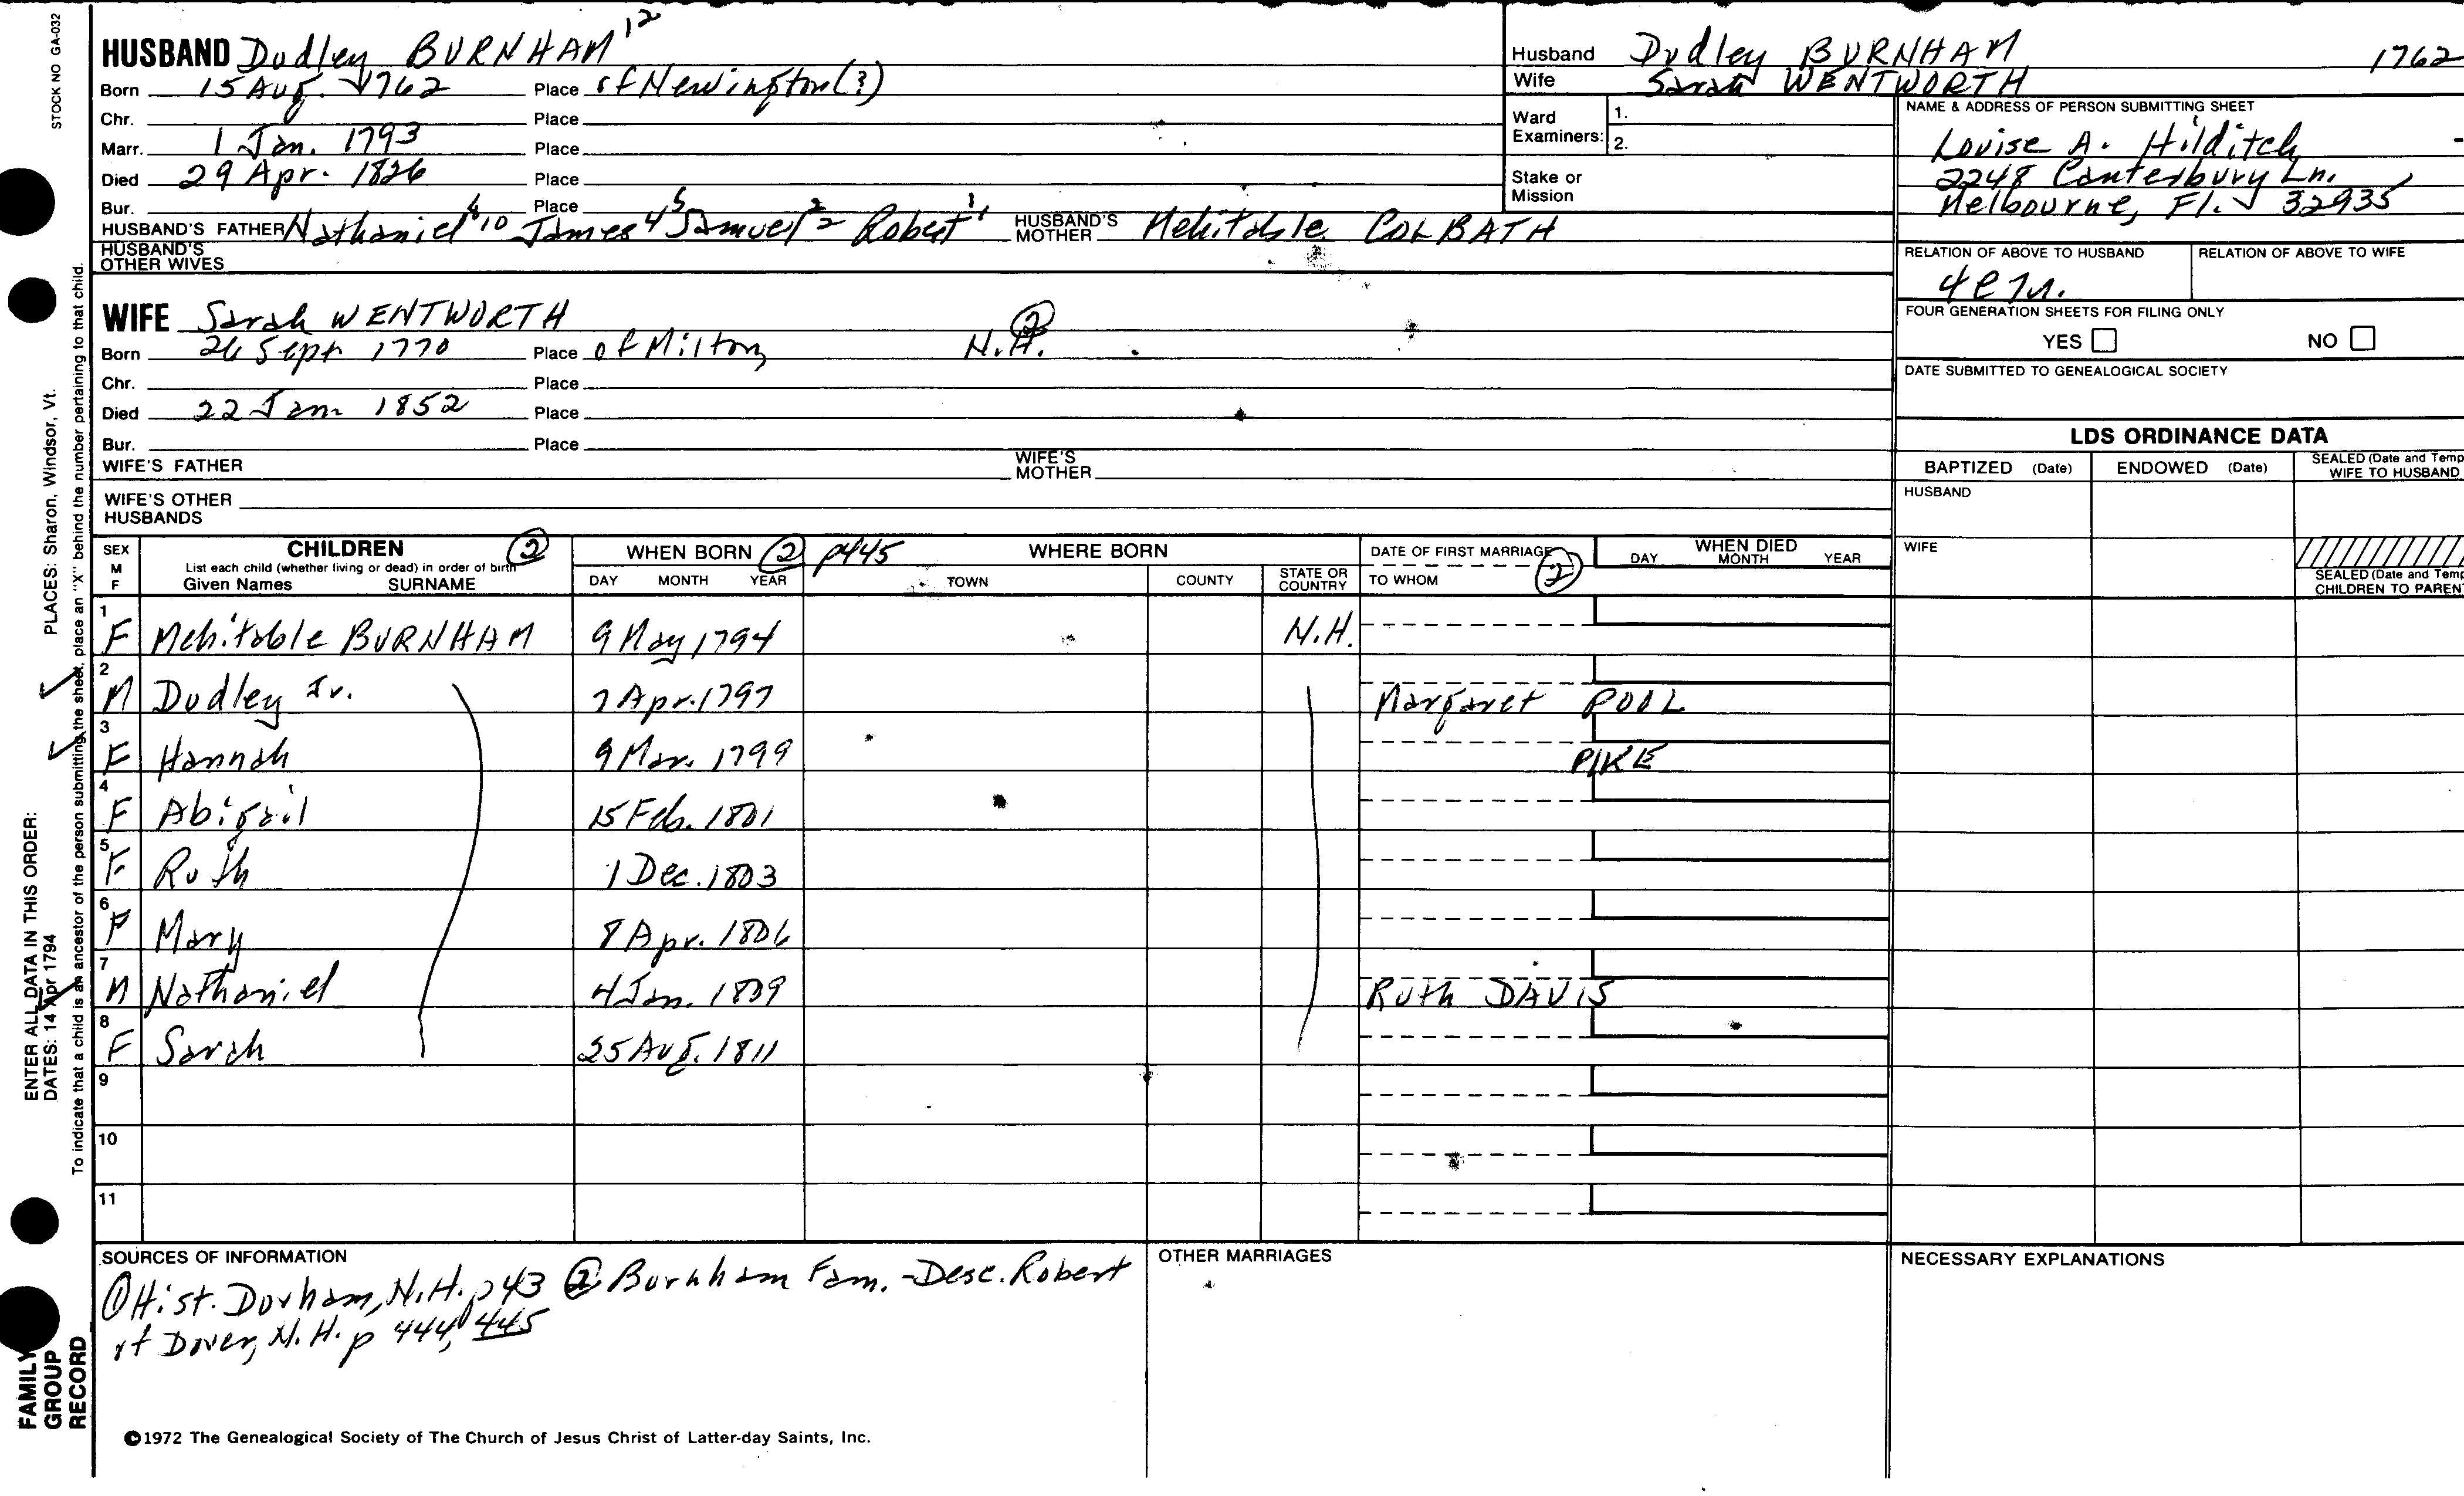 STOCK NO GA-032
HUSBAND Dudley BURNHAM 12
Born 15 Aug. 1762 Place of Newington (?)
Chr. Place
Marr. 1 Jan. 1793 Place
Died 29 Apr. 1826 Place
Bur. Place
HUSBAND'S FATHER Nathaniel 10 James 4 Samuel 2 Robert 1 HUSBAND'S MOTHER Mehitable COLBATH
HUSBAND'S OTHER WIVES
Husband Dudley BURNHAM 1762
Wife Sarah WENTWORTH
Ward Examiners: 1.
2.
Stake or Mission
NAME & ADDRESS OF PERSON SUBMITTING SHEET
Louise A. Hilditch
2248 Canterbury Ln.
Melbourne, Fl. 32935
RELATION OF ABOVE TO HUSBAND RELATION OF ABOVE TO WIFE
FOUR GENERATION SHEETS FOR FILING ONLY
YES NO
DATE SUBMITTED TO GENEALOGICAL SOCIETY
WIFE Sarah WENTWORTH
Born 26 Sept 1770 Place of Milton, N.H. 2
Chr. Place
Died 22 Jan 1852 Place
Bur. Place
WIFE'S FATHER WIFE'S MOTHER
WIFE'S OTHER HUSBANDS
LDS ORDINANCE DATA
BAPTIZED (Date) ENDOWED (Date) SEALED (Date and Temp WIFE TO HUSBAND
HUSBAND
WIFE
SEALED (Date and Temp CHILDREN TO PAREN
SEX M F CHILDREN 2 List each child (whether living or dead) in order of birth Given Names SURNAME
WHEN BORN 2 p445 DAY MONTH YEAR
WHERE BORN TOWN COUNTY STATE OR COUNTRY
DATE OF FIRST MARRIAGE TO WHOM 2
WHEN DIED DAY MONTH YEAR
1 F Mehitable BURNHAM 9 May 1794 N.H.
2 M Dudley Jr. 7 Apr. 1797 Margaret POOL
3 F Hannah 9 Mar. 1799 PIKE
4 F Abigail 15 Feb. 1801
5 F Ruth 1 Dec. 1803
6 F Mary 8 Apr. 1806
7 M Nathaniel 4 Jan. 1809 Ruth DAVIS
8 F Sarah 25 Aug. 1811
9
10
11
SOURCES OF INFORMATION
1 Hist. Durham, N.H. p 43 2 Burnham Fam. - Desc. Robert
of Dover, N.H. p 444, 445
OTHER MARRIAGES
NECESSARY EXPLANATIONS
©1972 The Genealogical Society of The Church of Jesus Christ of Latter-day Saints, Inc.
FAMILY GROUP RECORD
ENTER ALL DATA IN THIS ORDER:
DATES: 14 Apr 1794
PLACES: Sharon, Windsor, Vt.
To indicate that a child is an ancestor of the person submitting the sheet, place an "X" behind the number pertaining to that child.